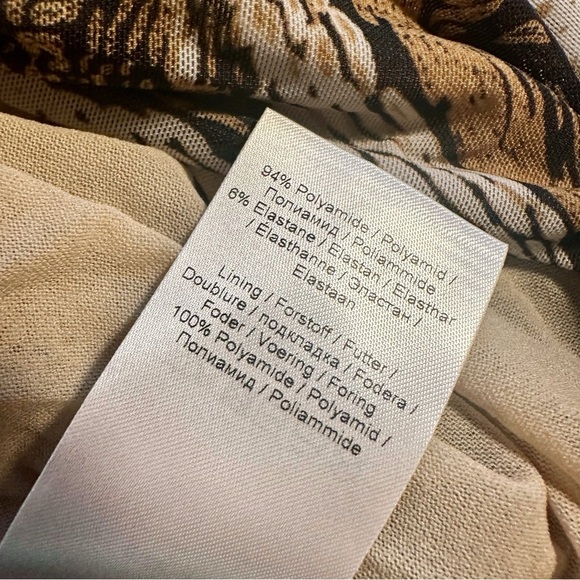 94% Polyamide / Polyamid /
Полиамид / Poliammide
6% Elastane / Elastan / Elasthan
/ Élasthanne / Эластан /
Elastaan
Lining / Forstoff / Futter /
Doublure / подкладка / Fodera /
Foder / Voering / Foring
100% Polyamide / Polyamid /
Полиамид / Poliammide